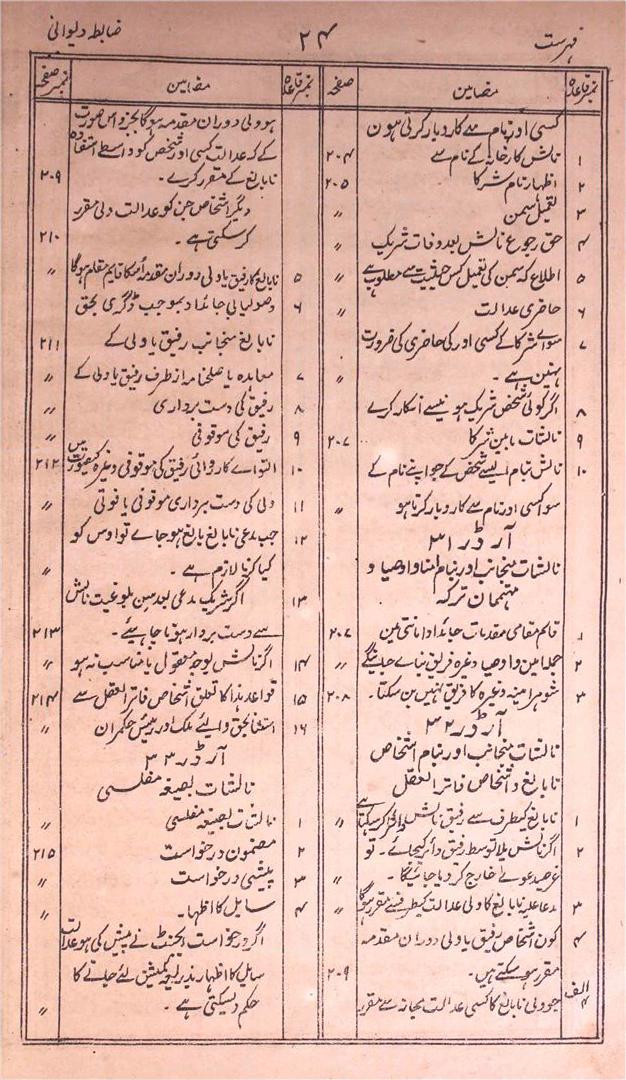 فہرست
۲۴
ضابطہ دیوانی
نمبر قاعدہ
مضامین
صفحہ
کسی اور نام سے کاروبار کرتی ہون
۱ نالش کارخانہ کے نام سے ۲۰۴
۲ اظہار نام شرکا ۲۰۵
۳ تعمیل سمن 〃
۴ حق رجوع نالش بعد وفات شریک 〃
۵ اطلاع کہ سمن کی تعمیل کس حیثیت سے مطلوب ہے 〃
۶ حاضری عدالت 〃
۷ سواے شرکا کے کسی اور کی حاضری کی ضرورت
نہین ہے ۔ 〃
۸ اگر کوئی شخص شریک ہونیسے انکار کرے
۹ نالشات مابین شرکا ۲۰۷
۱۰ نالش بنام ایسے شخص کے جو اپنے نام کے
سوا کسی اور نام سے کاروبار کرتا ہو 〃
آرڈر ۳۱
نالشات منجانب اور بنام امنا و اوصیا و
مہتممان ترکہ
۱ قائم مقامی مقدمات جائداد امانتی مین ۲۰۷
۲ جملہ امین و اوصیا وغیرہ فریق بنائے جائینگے 〃
۳ شوہر امینہ وغیرہ کا فریق نہین بن سکتا ۔ ۲۰۸
آرڈر ۳۲
نالشات منجانب اور بنام اشخاص
نابالغ و اشخاص فاتر العقل
۱ نابالغ کیطرف سے رفیق نالش دائر کر سکتا ہے 〃
۲ اگر نالش بلا توسط رفیق دائر کیجائے ۔ تو
عرضیدعوے خارج کر دیا جائیگا ۔ 〃
۳ مدعا علیہ نابالغ کا ولی عدالت کیطرف سے مقرر ہوگا 〃
۴ کون اشخاص رفیق یا ولی دوران مقدمہ
مقرر ہو سکتے ہیں ۔ ۲۰۹
۴ الف جو ولی نابالغ کا کسی عدالت مجاز سے مقرر
نمبر قاعدہ
مضامین
نمبر صفحہ
ہو ولی دوران مقدمہ ہوگا بجز اس صورت
کے کہ عدالت کسی اور شخص کو واسطے استفادہ
نابالغ کے مقرر کرے ۔ ۲۰۹
دیگر اشخاص جن کو عدالت ولی مقرر
کر سکتی ہے ۔ ۲۱۰
۵ نابالغ کا رفیق یا ولی دوران مقدمہ اسکا قایم مقام ہوگا 〃
۶ وصولیابی جائداد بموجب ڈگری بحق
نابالغ منجانب رفیق یا ولی کے ۲۱۱
۷ معاہدہ یا صلحنامہ از طرف رفیق یا ولی کے 〃
۸ رفیق کی دست برداری 〃
۹ رفیق کی موقوفی 〃
۱۰ التواے کاروائی رفیق کی موقوفی وغیرہ کیصورت میں ۲۱۲
۱۱ ولی کی دست برداری موقوفی یا فوتی 〃
۱۲ جب مدعی نابالغ بالغ ہو جاے تو اوس کو
کیا کرنا لازم ہے ۔ 〃
۱۳ اگر شریک مدعی بعد سن بلوغیت نالش
سے دست بردار ہونا چاہے ۔ ۲۱۳
۱۴ اگر نالش بوجہ معقول یا مناسب نہ ہو 〃
۱۵ قواعد ہذا کا تعلق اشخاص فاتر العقل سے ۲۱۴
۱۶ استثنا بحق والئے ملک اور رئیس حکمران 〃
آرڈر ۳۳
نالشات بصیغہ مفلسی
۱ نالشات بصیغہ مفلسی 〃
۲ مضمون درخواست ۲۱۵
۳ پیشی درخواست 〃
۴ سایل کا اظہار ۔ 〃
اگر درخواست ایجنٹ نے پیش کی ہو عدالت
سایل کا اظہار بذریعہ کمیشن لئے جانے کا
حکم دیسکتی ہے ۔ 〃